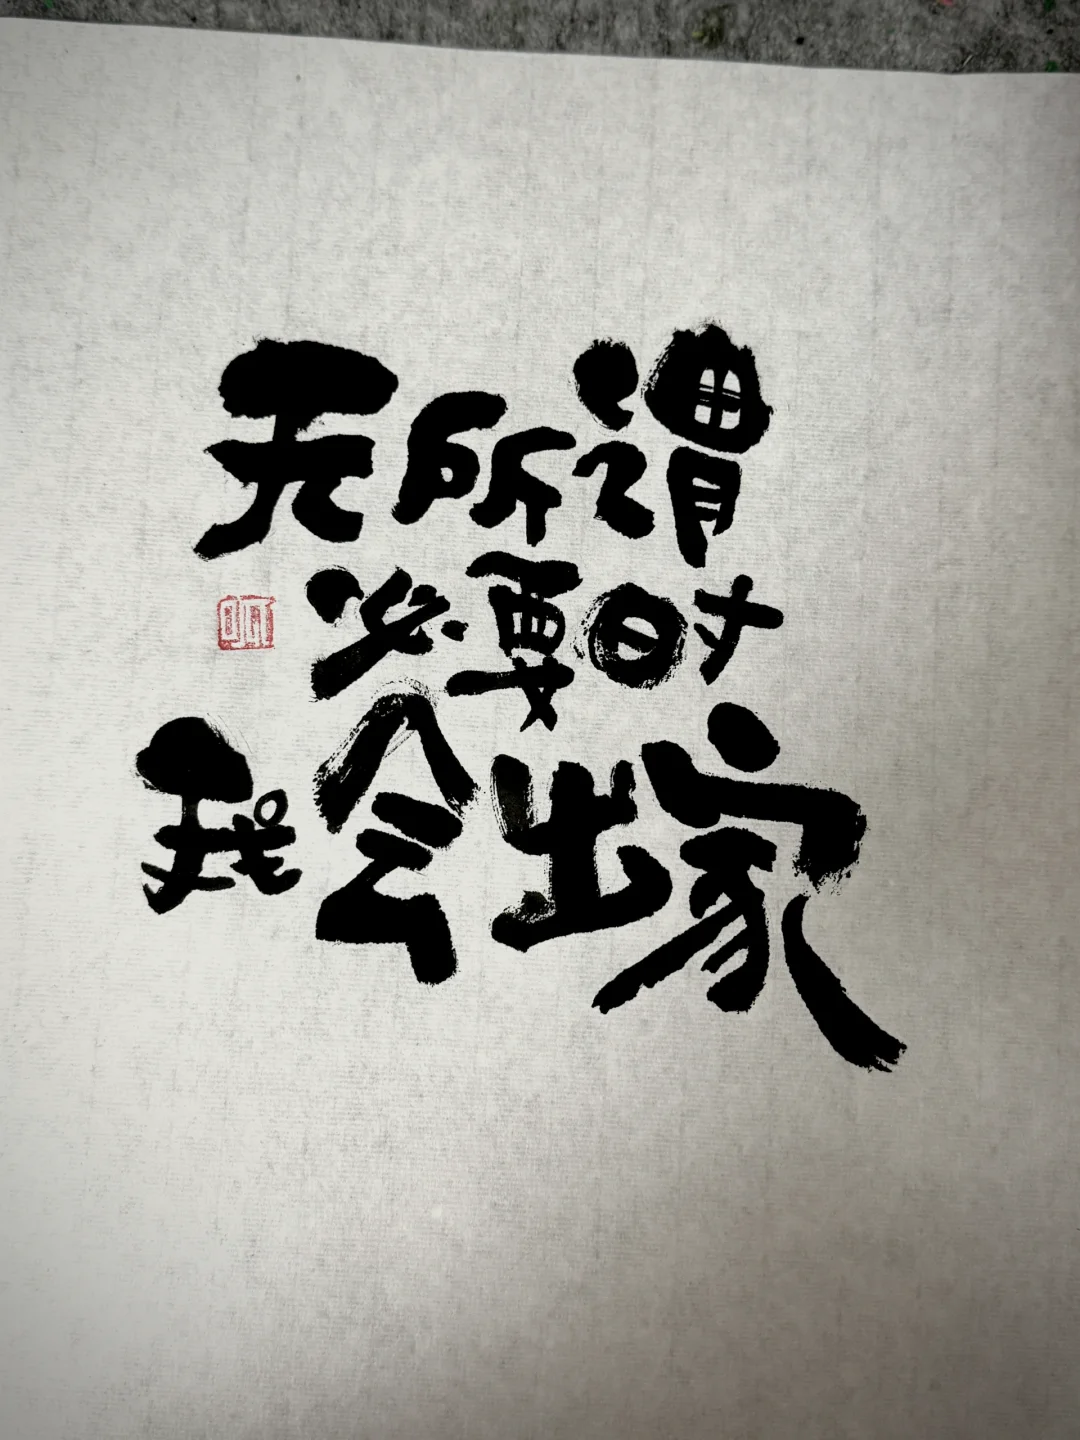 无所谓
必要时
我会出家